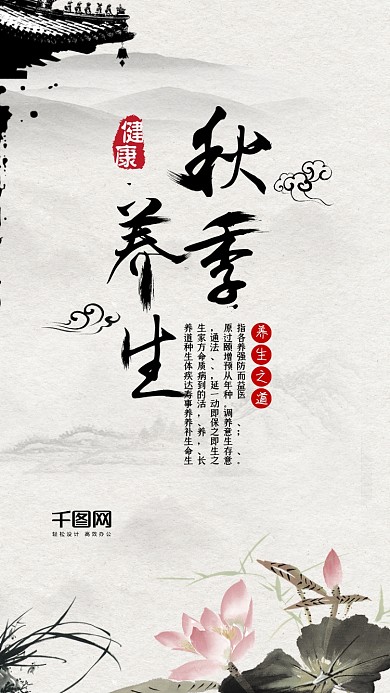 健康
秋季
养生
养生之道
养生，原指
道家通过各
种方法颐养
生命、增强
体质、预防
疾病，从而
达到延年益
寿的一种医
事活动，
养，即调
养、保养、
补养之意；
生，即生
命、生存、
生长之意。
千图网
轻松设计 高效办公